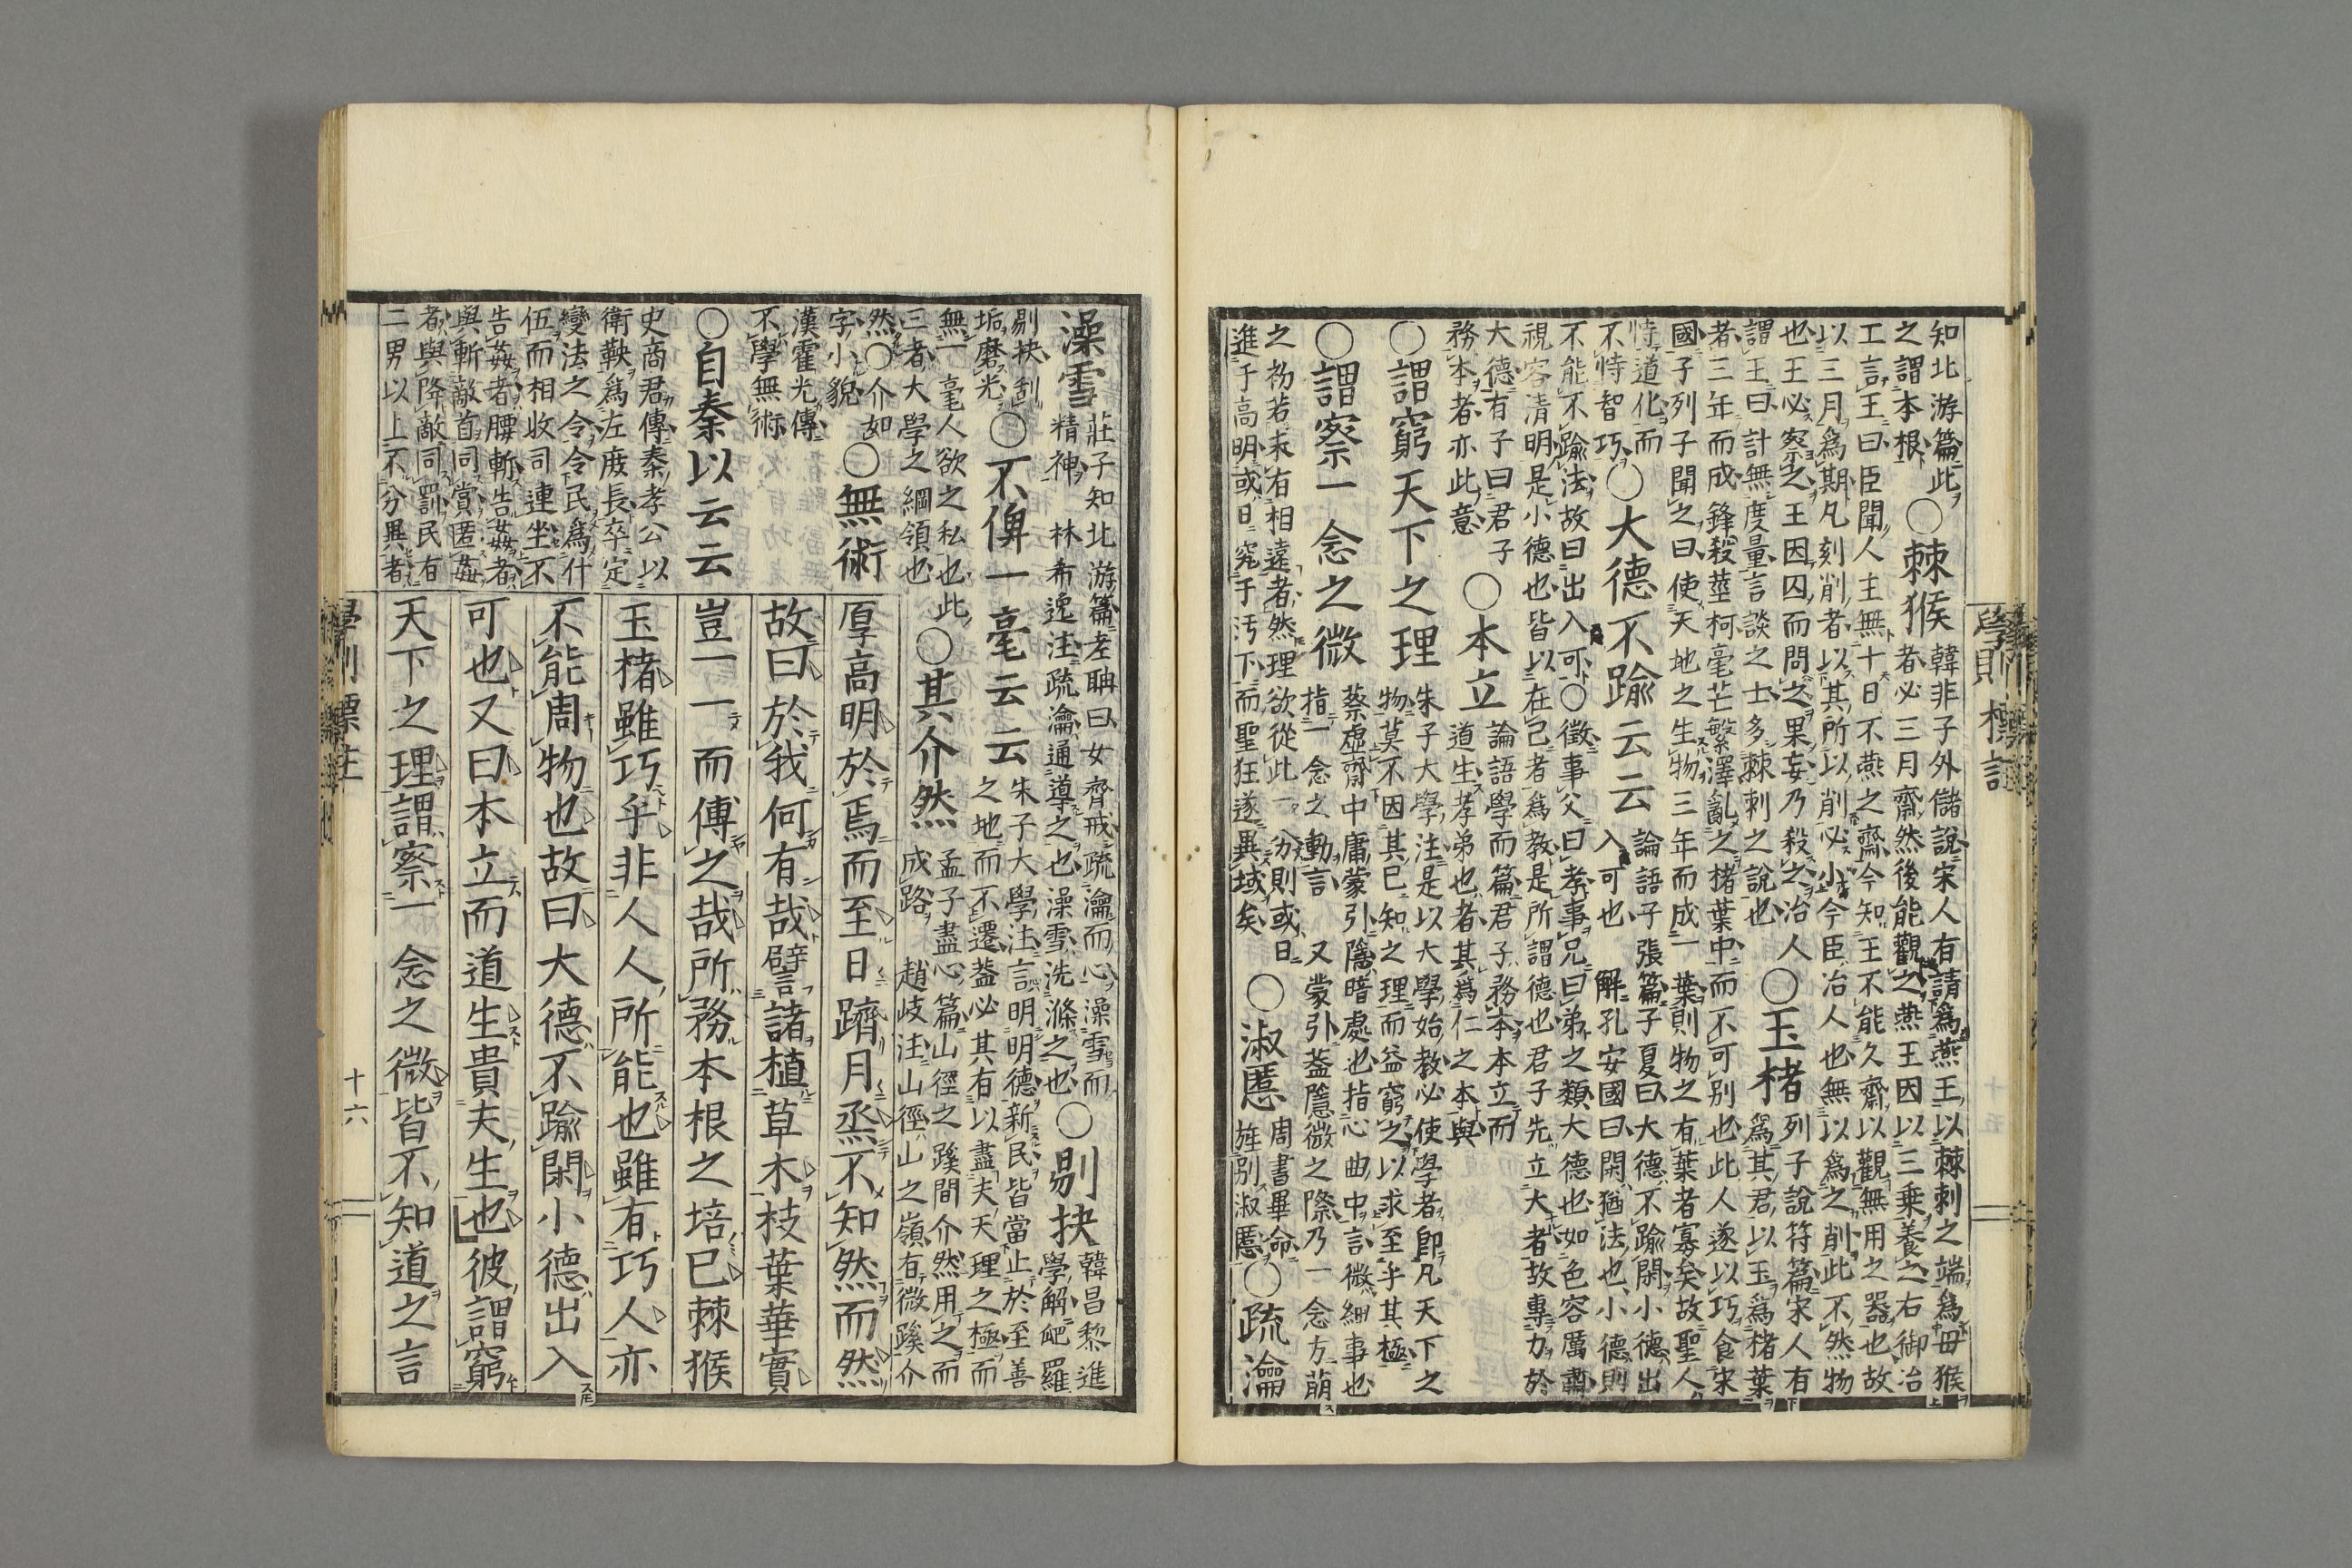 學則標註
知北游篇此
之謂本根
〇棘猴
韓非子外儲說宋人有請爲燕王以棘刺之端爲母猴
者必三月齋然後能觀之燕王因以三乘養之右御冶
工言王曰臣聞人主無十日不燕之齋今知王不能久齋以觀無用之器也故
以三月爲期凡刻削者以其所以削必小今臣冶人也無以爲之削此不然物
也王必察之王因囚而問之果妄乃殺之冶人
謂王曰計無度量言談之士多棘刺之說也
〇玉楮
列子說符篇宋人有
爲其君以玉爲楮葉
者三年而成鋒殺莖柯毫芒繁澤亂之楮葉中而不可別也此人遂以巧食宋
國子列子聞之曰使天地之生物三年而成一葉則物之有葉者寡矣故聖人
恃道化而
不恃智巧
〇大德不踰云云
論語子張篇子夏曰大德不踰閑小德出
入可也 解孔安國曰閑猶法也小德則
不能不踰法故曰出入可〇徵事父曰孝事兄曰弟之類大德也如色容厲肅
視容清明是小德也皆以在己者爲教是所謂德也君子先立大者故專力於
大德有子曰君子
務本者亦此意
〇本立
論語學而篇君子務本本立而
道生孝弟也者其爲仁之本與
〇謂窮天下之理
朱子大學注是以大學始教必使學者卽凡天下之
物莫不因其已知之理而益窮之以求至乎其極
〇謂察一念之微
蔡虛齋中庸蒙引隱暗處也指心曲中言微細事也
指一念之動言 又蒙引蓋隱微之際乃一念方萌
之初若未有相遠者然理欲從此一分則或日
進于高明或日究于汚下而聖狂遂異域矣
〇淑慝
周書畢命
旌別淑慝
〇疏瀹
澡雪
莊子知北游篇老聃曰女齊戒疏瀹而心澡雪而
精神 林希逸注疏瀹通導之也澡雪洗滌之也
〇剔抉
韓昌黎進
學解爬羅
剔抉刮
垢磨光
〇不俾一毫云云
朱子大學注言明明德新民皆當止於至善
之地而不遷蓋必其有以盡夫天理之極而
無一毫人欲之私也此
三者大學之綱領也
〇其介然
孟子盡心篇山徑之蹊間介然用之而
成路 趙岐注山徑山之嶺有微蹊介
然〇介如
字小貌
〇無術
漢霍光傳
不學無術
〇自秦以云云
史商君傳秦孝公以
衛鞅爲左庻長卒定
變法之令令民爲什
伍而相收司連坐不
告姦者腰斬告姦者
與斬敵首同賞匿姦
者與降敵同罰民有
二男以上不分異者
厚高明於焉而至日躋月烝不知然而然
故曰於我何有哉譬諸植草木枝葉華實
豈一一而傅之哉所務本根之培已棘猴
玉楮雖巧乎非人人所能也雖有巧人亦
不能周物也故曰大德不踰閑小德出入
可也又曰本立而道生貴夫生也彼謂窮
天下之理謂察一念之微皆不知道之言
十六